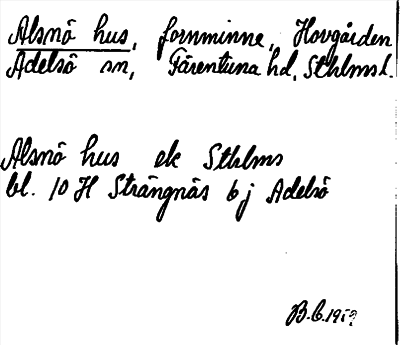 Alsnö hus, fornminne, Hovgården
Adelsö sn, Färentuna hd, Sthlms l.
Alsnö hus ek Sthlms
bl. 10 H Strängnäs 6 j Adelsö